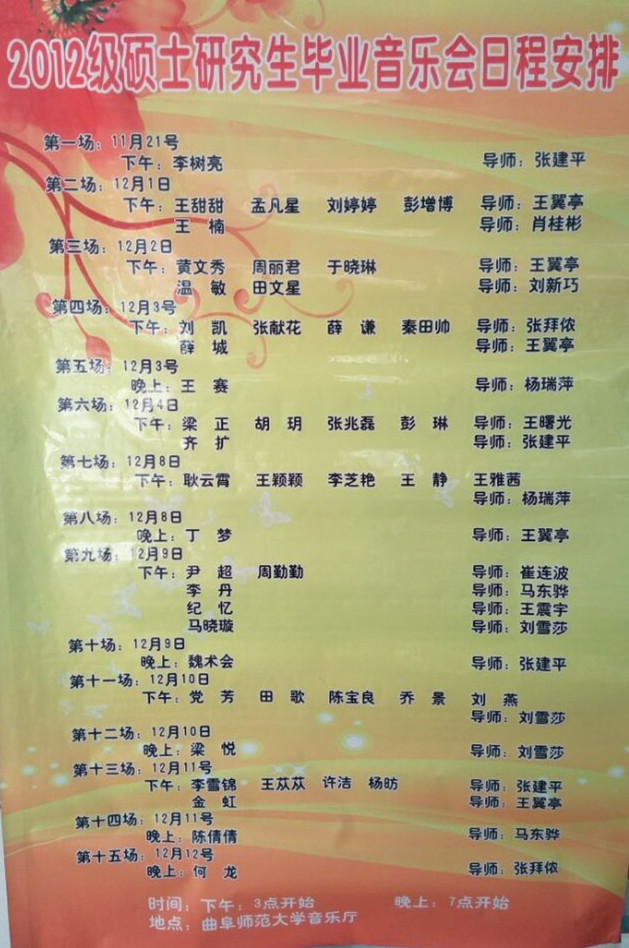 2012级硕士研究生毕业音乐会日程安排
第一场：11月21号
下午：李树亮 导师：张建平
第二场：12月1日
下午：王甜甜 孟凡星 刘婷婷 彭增博 导师：王翼亭
王 楠 导师：肖桂彬
第三场：12月2日
下午：黄文秀 周丽君 于晓琳 导师：王翼亭
温 敏 田文星 导师：刘新巧
第四场：12月3号
下午：刘 凯 张献花 薛 谦 秦田帅 导师：张拜侬
薛 城 导师：王翼亭
第五场：12月3号
晚上：王 赛 导师：杨瑞萍
第六场：12月4日
下午：梁 正 胡 玥 张兆磊 彭 琳 导师：王曙光
齐 扩 导师：张建平
第七场：12月8日
下午：耿云霄 王颖颖 李芝艳 王 静 王雅茜
导师：杨瑞萍
第八场：12月8日
晚上：丁 梦 导师：王翼亭
第九场：12月9日
下午：尹 超 周勤勤 导师：崔连波
李 丹 导师：马东骅
纪 忆 导师：王震宇
马晓璇 导师：刘雪莎
第十场：12月9日
晚上：魏术会 导师：张建平
第十一场：12月10日
下午：党 芳 田 歌 陈宝良 乔 景 刘 燕
导师：刘雪莎
第十二场：12月10日
晚上：梁 悦 导师：刘雪莎
第十三场：12月11号
下午：李雪锦 王苁苁 许洁 杨昉 导师：张建平
金 虹 导师：王翼亭
第十四场：12月11号
晚上：陈倩倩 导师：马东骅
第十五场：12月12号
晚上：何 龙 导师：张拜侬
时间：下午：3点开始 晚上：7点开始
地点：曲阜师范大学音乐厅